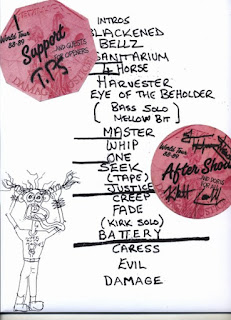 INTROS
BLACKENED
BELLZ
SANITARIUM
4 HORSE
HARVESTER
EYE OF THE BEHOLDER
(BASS SOLO
MELLOW BIT)
MASTER
WHIP
ONE
SEEK
(TAPE)
JUSTICE
CREEP
FADE
(KIRK SOLO)
BATTERY
CARESS
EVIL
DAMAGE
World Tour
88-89
Support
AND GUESTS
FOR OPENERS
T.P.s
DAMAGE
World Tour
88-89
After Show
AND DORIS FOR
DAMAGE